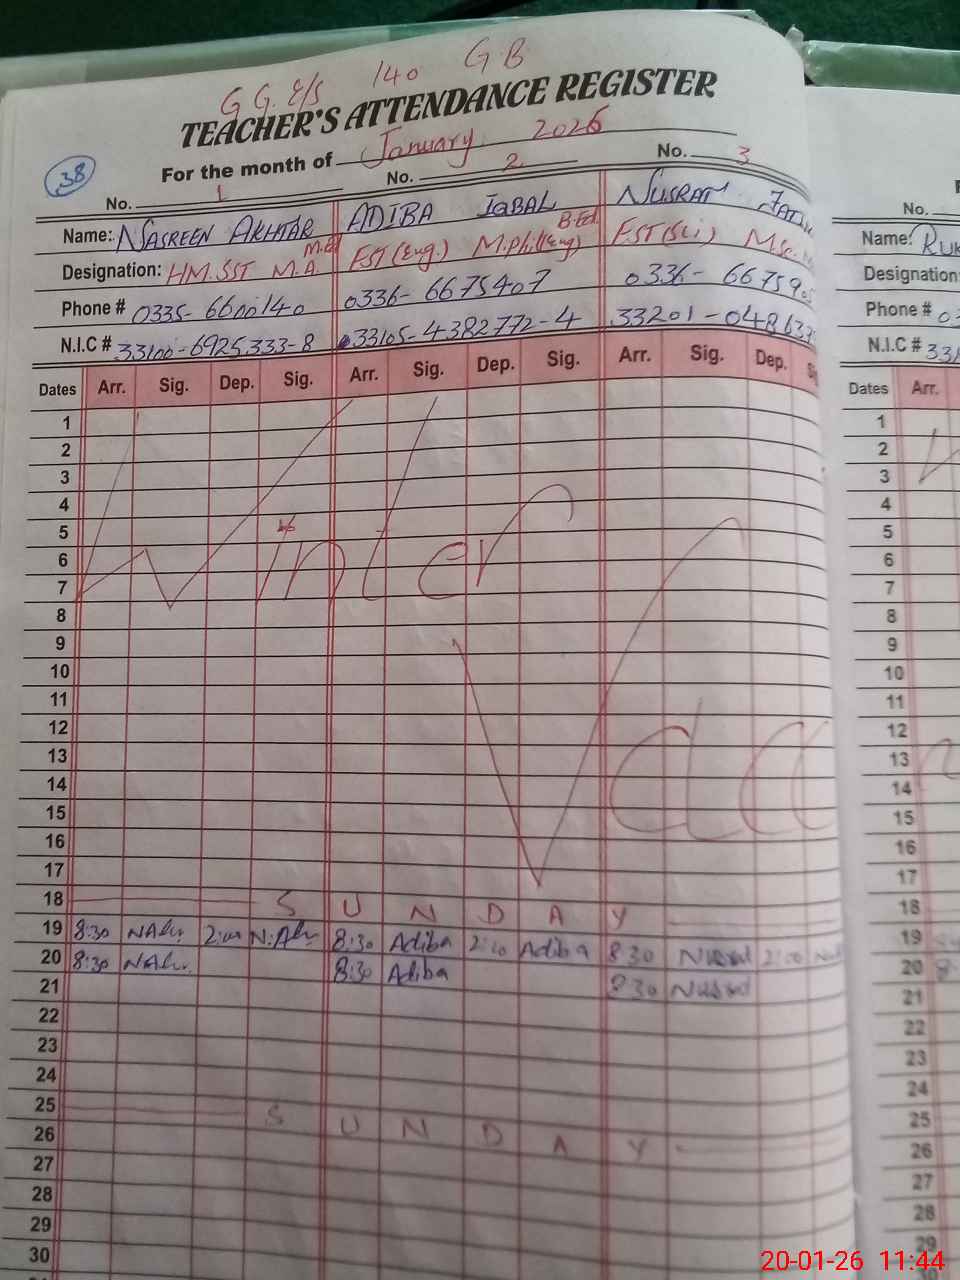 G G. E/S 140 G B
TEACHER'S ATTENDANCE REGISTER
For the month of January 2026
38
No. 1 No. 2 No. 3
Name: NASREEN AKHTAR ADIBA IQBAL NUSRAT
Designation: HM.SST M.A. M.Ed EST (Eng.) M.phil(Eng) B.Ed. EST (Sci) M.Sc.
Phone # 0335-6600140 0336-6675407 0336-66759
N.I.C # 33100-6925333-8 33105-4382772-4 33201-04863
Dates Arr. Sig. Dep. Sig. Arr. Sig. Dep. Sig. Arr. Sig. Dep.
1
2
3
4
5
6
7
8
9
10
11
12
13
14
15
16
17
Winter
Vaca
18 S U N D A Y
19 8:30 NAkr. 2:00 N.Akr 8:30 Adiba 2:00 Adiba 8:30 Nusrat 2:00
20 8:30 NAkr. 8:30 Adiba 8:30 Nusrat
21
22
23
24
25 S U N D A Y
26
27
28
29
30
No.
Name:
Designation
Phone #
N.I.C #
Dates Arr.
1
2
3
4
5
6
7
8
9
10
11
12
13
14
15
16
17
18
19
20
21
22
23
24
25
26
27
28
29
20-01-26 11:44